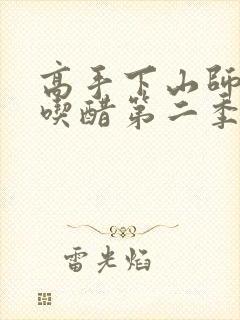 高手下山師
喫醋第二季
雷光焰